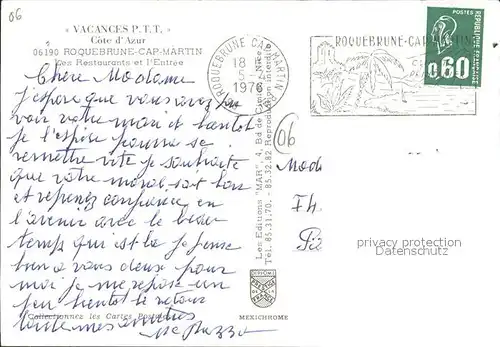 06
« VACANCES P.T.T. »
Côte d'Azur
06190 ROQUEBRUNE-CAP-MARTIN
Les Restaurants et l'Entrée
Chère Madame
j'espère que vous avez pu
voir votre mari et bientôt
je l'espère pourra se
remettre vite je souhaite
que votre moral soit bon
et reprenez confiance en
l'avenir avec le beau
temps qui est là je pense
bien a vous deux pour
moi je me repose un
peu bientôt le retour
toutes mes amitiés
Collectionnez les Cartes Postales
ROQUEBRUNE CAP MARTIN
18
5-4
1976
ROQUEBRUNE-CAP-MARTIN
POSTES
0,60
REPUBLIQUE FRANÇAISE
06
Les Editions "MAR", 4, Bd de
Tél. 85.31.70. - 85.32.82 Reproduction interdite
DIPLOME
PRESTIGE
FRANCE
MEXICHROME
74
privacy protection
Datenschutz